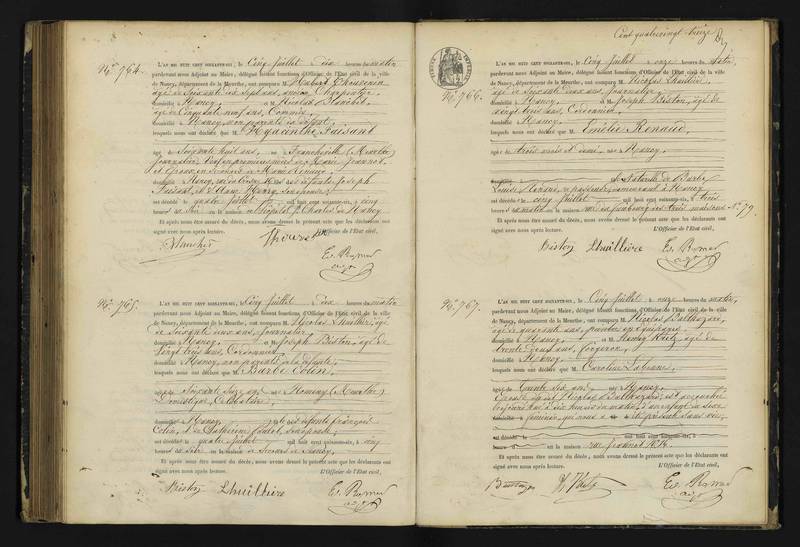 No. 764.
L'AN MIL HUIT CENT SOIXANTE-SIX, le Cinq Juillet Dix heures du matin
pardevant nous Adjoint au Maire, délégué faisant fonctions d'Officier de l'État civil de la ville
de Nancy, département de la Meurthe, ont comparu M. Hubert Thouvenin
âgé de Soixante dix sept ans, ancien Charpentier,
domicilié à Nancy, et M. Nicolas Blanchet
âgé de Cinquante neuf ans, Commis,
domicilié à Nancy, non parents du défunt,
lesquels nous ont déclaré que M. Hyacinthe Faisant
âgé de Soixante huit ans, né Francheville (Meurthe)
journalier, Veuf en premières noces de Marie Jeannot,
et Epoux en secondes de
domicilié à Nancy, Joseph
Faisant, et
est décédé le quatre juillet mil huit cent soixante-six, à cinq
heures du Soir en la maison à l'hôpital St Charles de Nancy
Et après nous être assuré du décès, nous avons dressé le présent acte que les déclarants ont
signé avec nous après lecture.
L'Officier de l'État civil,
Blanchet Thouvenin Ev. Romer
adjt
No. 765.
L'AN MIL HUIT CENT SOIXANTE-SIX, le Cinq Juillet Dix heures du matin
pardevant nous Adjoint au Maire, délégué faisant fonctions d'Officier de l'État civil de la ville
de Nancy, département de la Meurthe, ont comparu M. Nicolas Lhuillière, âgé
de Soixante deux ans, Journalier
domicilié à Nancy, et M. Joseph Biston, âgé de
Vingt trois ans, Cordonnier,
domicilié à Nancy, non parents de la défunte,
lesquels nous ont déclaré que M. Barbe Colin,
âgée de Soixante Seize ans, née Nomeny (Meurthe)
Domestique, Célibataire,
domiciliée à Nancy, fille des défunts François
Colin, et de Catherine
est décédée le quatre Juillet mil huit cent soixante-six, à cinq
heures du Soir en la maison de Secours de Nancy,
Et après nous être assuré du décès, nous avons dressé le présent acte que les déclarants ont
signé avec nous après lecture.
L'Officier de l'État civil,
Biston Lhuillière Ev. Romer
adjt
Cent quatrevingt treize
No. 766.
L'AN MIL HUIT CENT SOIXANTE-SIX, le Cinq Juillet à onze heures du Matin,
pardevant nous Adjoint au Maire, délégué faisant fonctions d'Officier de l'État civil de la ville
de Nancy, département de la Meurthe, ont comparu M. Nicolas Lhuillière,
âgé de Soixante Deux ans, Journalier
domicilié à Nancy, et M. Joseph Biston, âgé de
vingt trois ans, Cordonnier,
domicilié à Nancy,
lesquels nous ont déclaré que M. Emélie Renaud,
âgée de trois mois et demi, née Nancy,
fille Naturelle de Barbe
Louise Renaud, demeurant à Nancy
est décédée le cinq Juillet mil huit cent soixante-six, à trois
heures du matin en la maison rue du faubourg des trois maisons No. 79.
Et après nous être assuré du décès, nous avons dressé le présent acte que les déclarants ont
signé avec nous après lecture.
L'Officier de l'État civil,
Biston Lhuillière Ev. Romer
adjt
No. 767.
L'AN MIL HUIT CENT SOIXANTE-SIX, le Cinq Juillet à onze heures du matin,
pardevant nous Adjoint au Maire, délégué faisant fonctions d'Officier de l'État civil de la ville
de Nancy, département de la Meurthe, ont comparu M. Nicolas Balthazard,
âgé de quarante ans, peintre en équipages,
domicilié à Nancy, et M. âgé de
trente neuf ans, forgeron,
domicilié à Nancy,
lesquels nous ont déclaré que M. Caroline
âgée de Trente Six ans, née Nancy,
Epouse dudit Nicolas Balthazard, est accouchée
aujourd'hui à dix heures du matin, d'un enfant du sexe
féminin, qui nous a été présenté sans vie,
est décédé le mil huit cent soixante-six, à
heures en la maison rue Jeannot No. 14.
Et après nous être assuré du décès, nous avons dressé le présent acte que les déclarants ont
signé avec nous après lecture.
L'Officier de l'État civil,
Ev. Romer
adjt